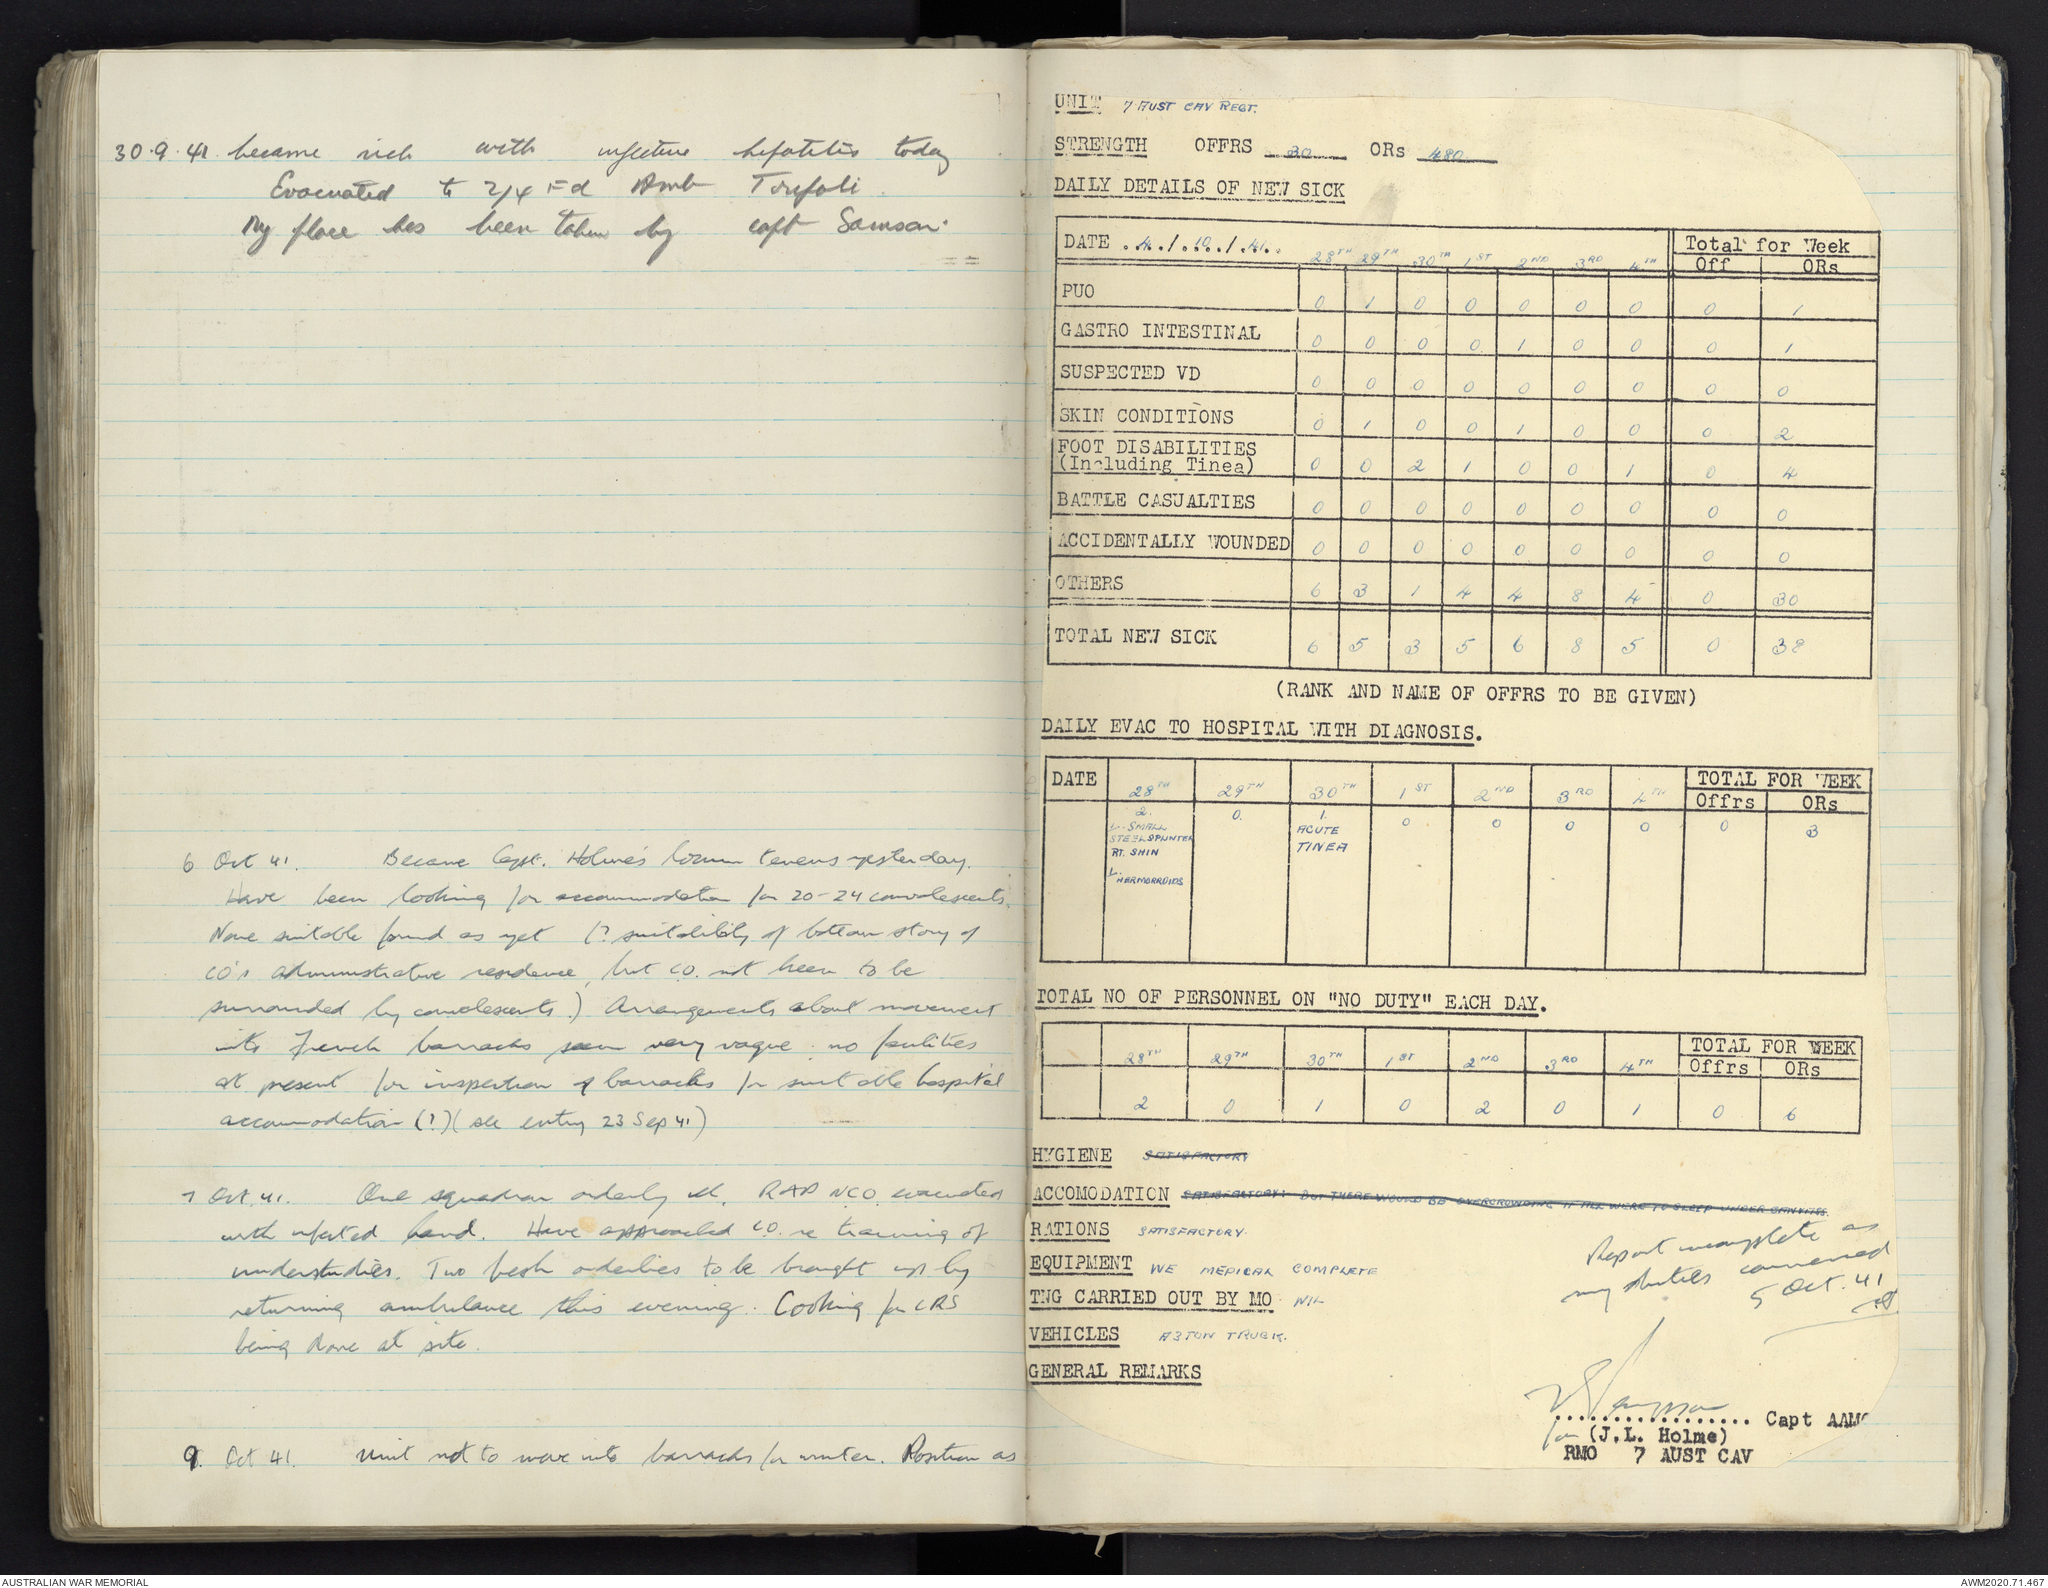 30.9.41 became sick with infective hepatitis today
Evacuated to 2/4 Fd Amb Tripoli.
My place has been taken by Capt Samson.
6 Oct 41. Became Capt. Holme's locum tenens yesterday.
Have been looking for accommodation for 20-24 convalescents.
None suitable found as yet (? suitability of bottom story of
CO's administrative residence, but CO. not keen to be
surrounded by convalescents.) Arrangements about movement
into French barracks seem very vague: no facilities
at present for inspection of barracks for suitable hospital
accommodation (?) (see entry 23 Sep 41)
7 Oct. 41. One squadron orderly & RAP NCO evacuated
with infected hand. Have approached CO. re training of
understudies. Two fresh orderlies to be brought up by
returning ambulance this evening. Cooking for CRS
being done at site.
9. Oct 41. Unit not to move into barracks for winter. Position as
UNIT 7 AUST CAV REGT.
STRENGTH OFFRS 30 ORs 480
DAILY DETAILS OF NEW SICK
DATE .4./.10./.41. 28TH 29TH 30TH 1ST 2ND 3RD 4TH Total for Week
Off ORs
PUO 0 1 0 0 0 0 0 0 1
GASTRO INTESTINAL 0 0 0 0 1 0 0 0 1
SUSPECTED VD 0 0 0 0 0 0 0 0 0
SKIN CONDITIONS 0 1 0 0 1 0 0 0 2
FOOT DISABILITIES
(Including Tinea) 0 0 2 1 0 0 1 0 4
BATTLE CASUALTIES 0 0 0 0 0 0 0 0 0
ACCIDENTALLY WOUNDED 0 0 0 0 0 0 0 0 0
OTHERS 6 3 1 4 4 8 4 0 30
TOTAL NEW SICK 6 5 3 5 6 8 5 0 38
(RANK AND NAME OF OFFRS TO BE GIVEN)
DAILY EVAC TO HOSPITAL WITH DIAGNOSIS.
DATE 28TH 29TH 30TH 1ST 2ND 3RD 4TH TOTAL FOR WEEK
Offrs ORs
2. 0. 1. 0 0 0 0 0 3
1. SMALL STEEL SPLINTER RT. SHIN
1. HERMORROIDS
ACUTE TINEA
TOTAL NO OF PERSONNEL ON "NO DUTY" EACH DAY.
28TH 29TH 30TH 1ST 2ND 3RD 4TH TOTAL FOR WEEK
Offrs ORs
2 0 1 0 2 0 1 0 6
HYGIENE SATISFACTORY
ACCOMODATION SATISFACTORY: BUT THERE WOULD BE OVERCROWDING IF ALL WERE TO SLEEP UNDER CANVASS.
RATIONS SATISFACTORY.
EQUIPMENT WE MEDICAL COMPLETE
TNG CARRIED OUT BY MO NIL
VEHICLES A 3 TON TRUCK.
GENERAL REMARKS
Report incomplete as
my duties commenced
5 Oct. 41
................. Capt AAMC
for (J.L. Holme)
RMO 7 AUST CAV
AUSTRALIAN WAR MEMORIAL
AWM2020.71.467